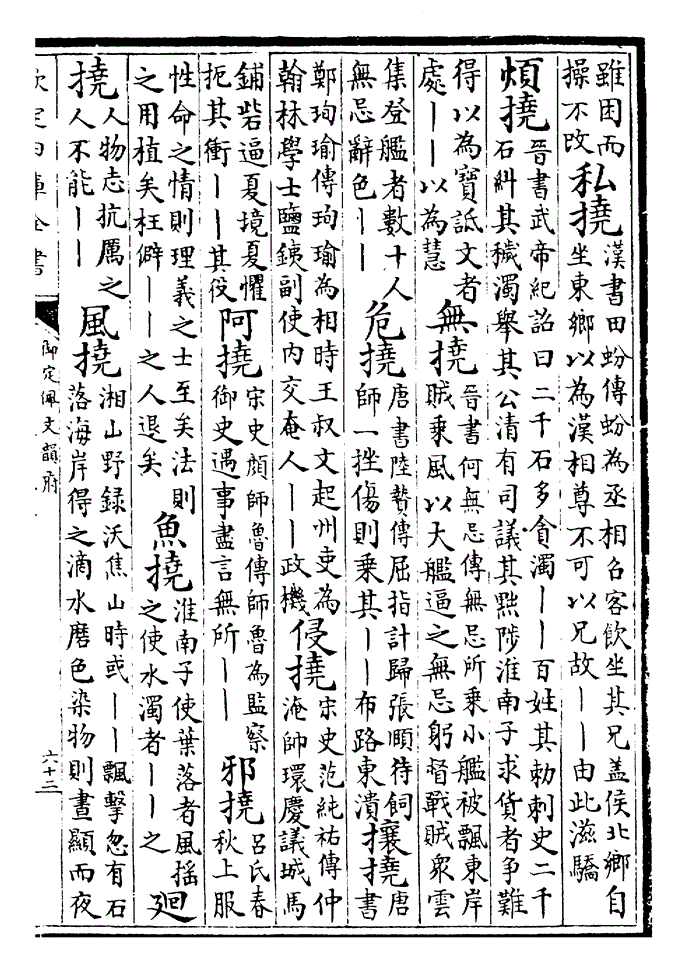 雖困而操不改私撓漢書田蚡傳蚡為丞相召客飲坐其兄盖侯北鄉自坐東鄉以為漢相尊不可以兄故丨丨由此滋驕
煩撓晉書武帝紀詔曰二千石多貪濁丨丨百姓其勅刺史二千石糾其穢濁舉其公清有司議其黜陟淮南子求貨者争難
得以為寶詆文者處丨丨以為慧無撓晉書何無忌傳無忌所乗小艦被飄東岸賊乗風以大艦逼之無忌躬督戰賊衆雲
集登艦者數十人無忌辭色丨丨危撓唐書陸贄傳屈指計歸張頤待飼師一挫傷則乗其丨丨布路東潰攘撓唐書
鄭珣瑜傳珣瑜為相時王叔文起州吏為翰林學士鹽鐵副使内交奄人丨丨政機侵撓宋史范純祐傳仲淹帥環慶議城馬
鋪砦逼夏境夏懼扼其衝丨丨其役阿撓宋史顔師魯傳師魯為監察御史遇事盡言無所丨丨邪撓呂氏春秋上服
性命之情則理義之士至矣法則之用植矣枉僻丨丨之人退矣魚撓淮南子使葉落者風揺之使水濁者丨丨之廻
撓人物志抗厲之人不能丨丨風撓湘山野録沃焦山時或丨丨飄擊忽有石落海岸得之滴水磨色染物則晝顯而夜
欽定四庫全書
御定佩文韻府
六十二